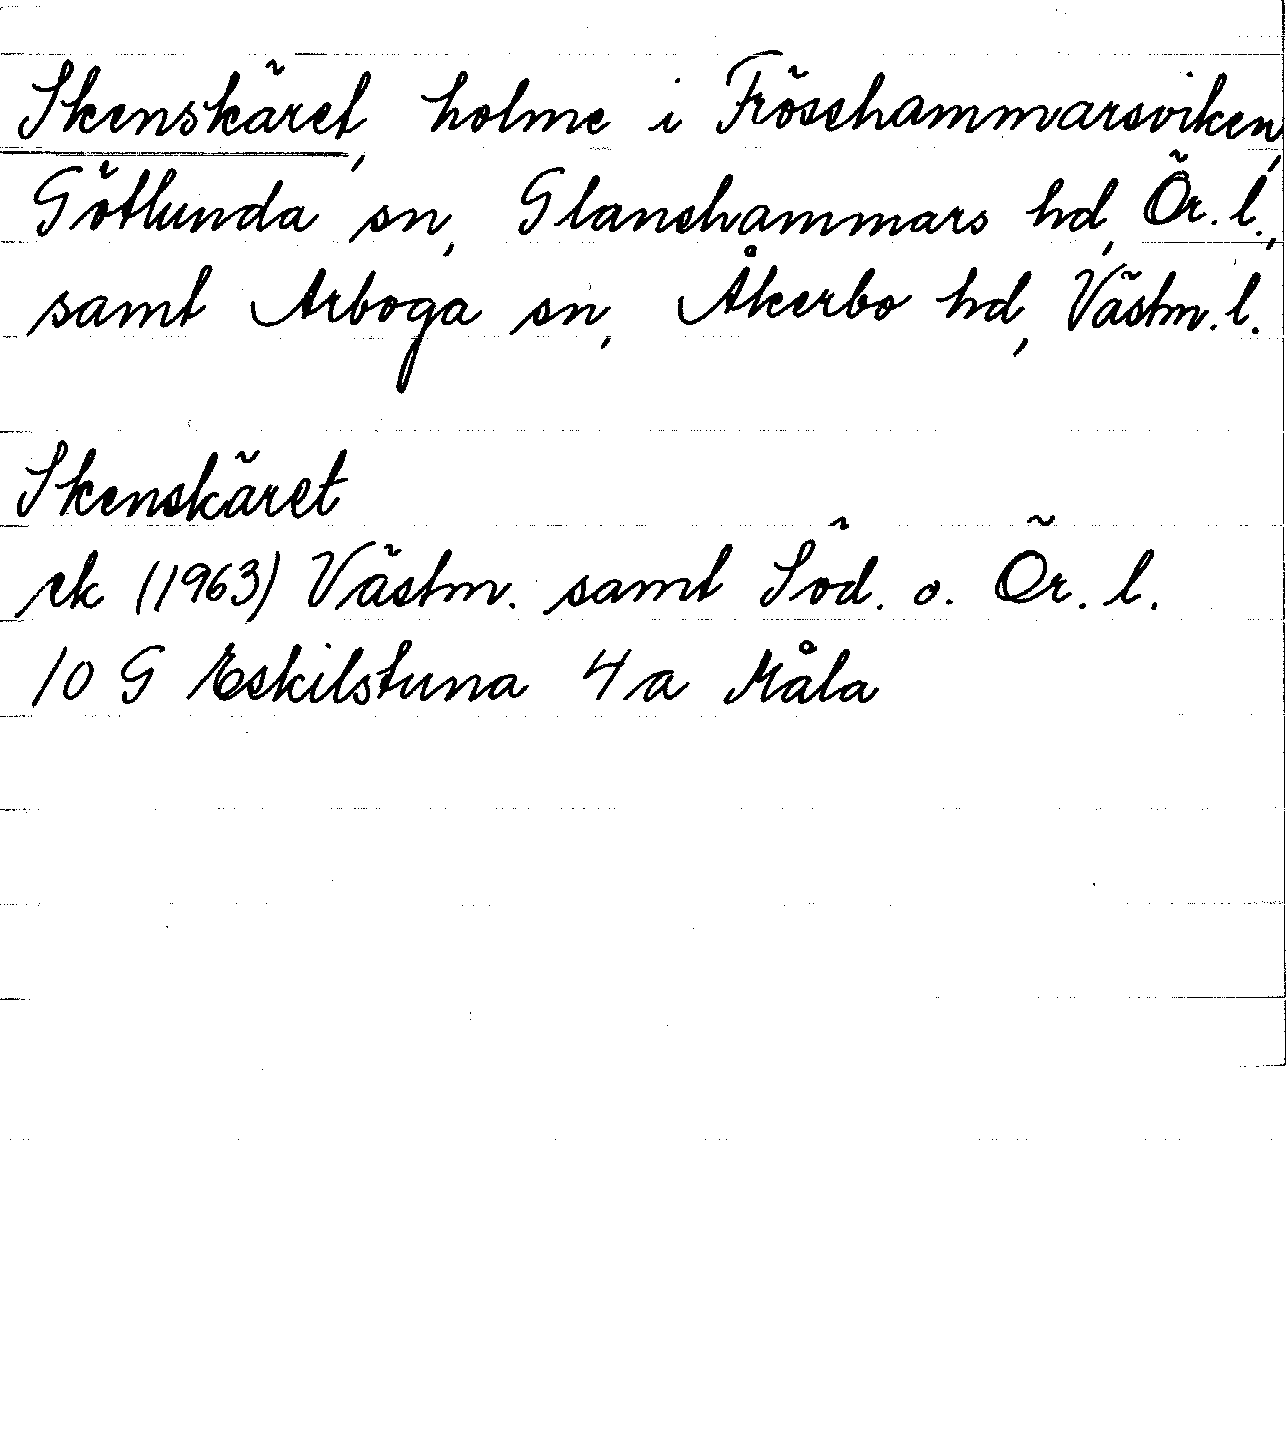 Skenskäret, holme i Frösshammarsviken,
Götlunda sn, Glanshammars hd, Ör. l.,
samt Arboga sn, Åkerbo hd, Västm. l.
Skenskäret
ek (1963) Västm. samt Söd. o. Ör. l.
10 G Eskilstuna 4a Måla